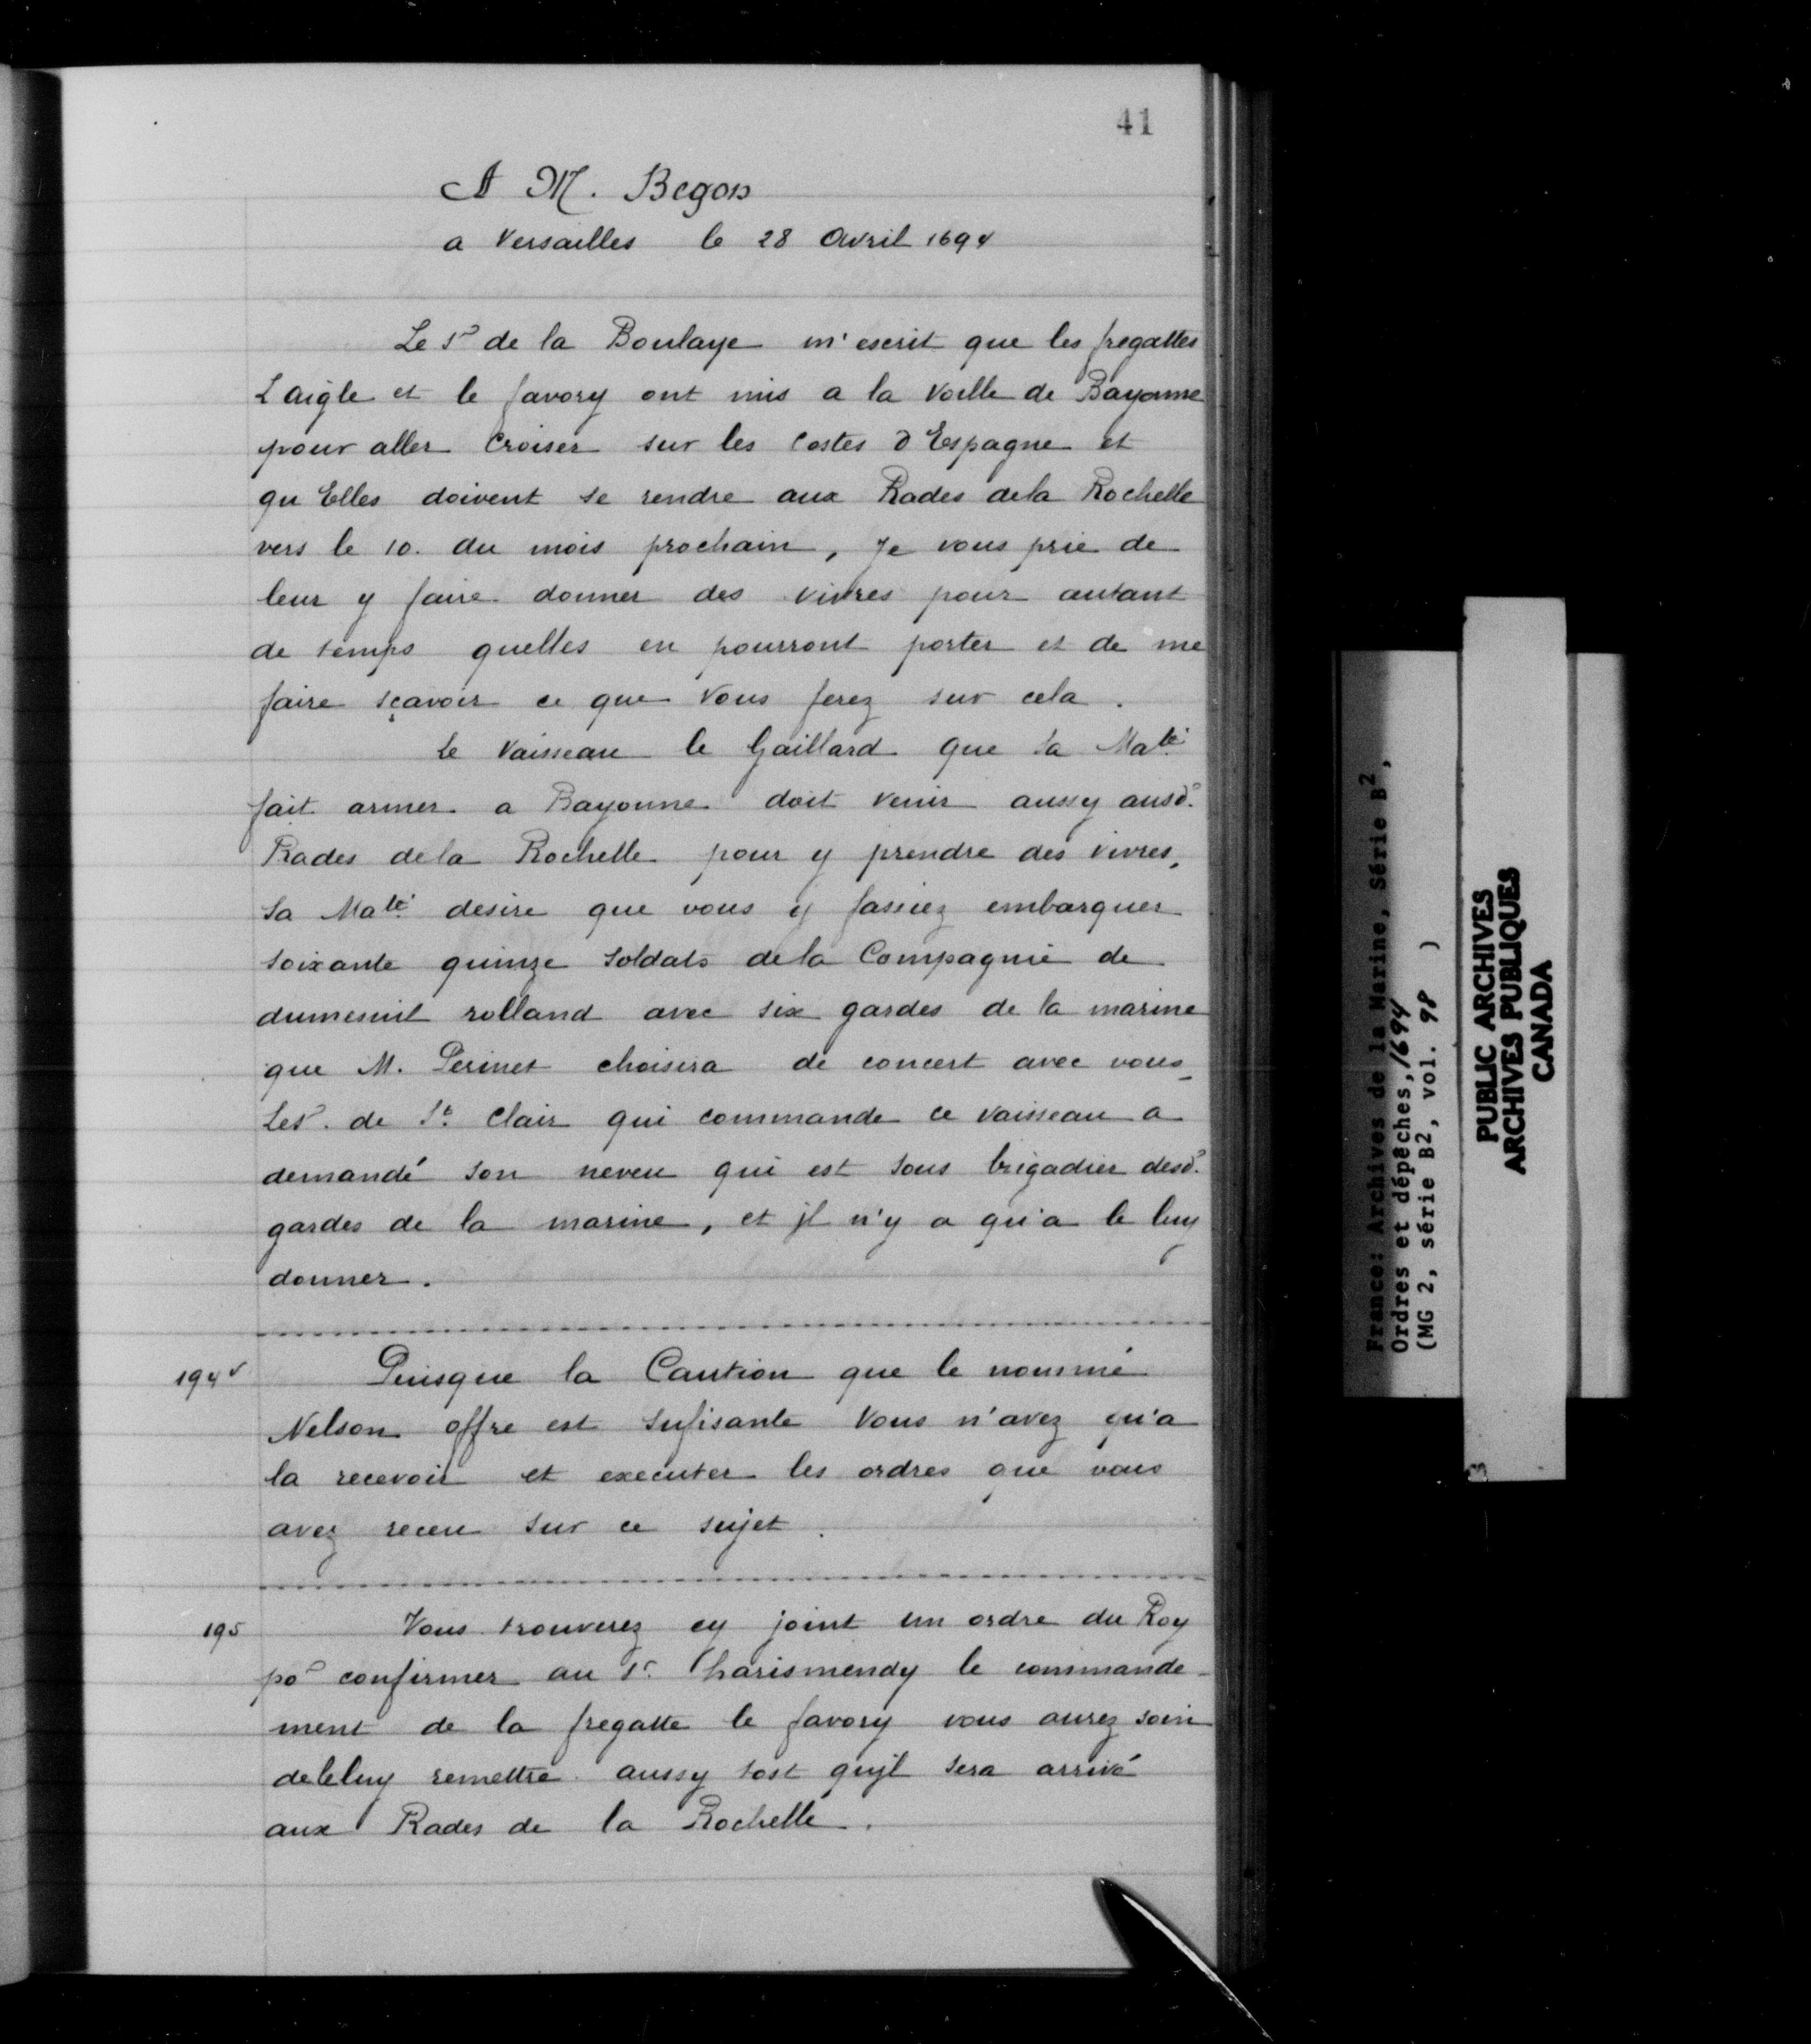 41
A M. Begon
a Versailles le 28 Avril 1694
Le Sr de la Boulaye m'escrit que les fregattes
L'aigle et le favory ont mis a la voille de Bayonne
pour aller Croiser sur les Costes d'Espagne et
qu'Elles doivent se rendre aux Rades dela Rochelle
vers le 10. du mois prochain, Je vous prie de
leur y faire donner des vivres pour autant
de temps quelles en pourront porter et de me
faire sçavoir ce que Vous ferez sur cela.
Le Vaisseau le Gaillard que Sa Maté
fait armer a Bayonne doit venir aussy ausd.
Rades dela Rochelle pour y prendre des vivres,
Sa Maté desire que vous y fassiez embarquer
soixante quinze Soldats dela Compagnie de
dumesnil rolland avec six gardes de la marine
que M. Perinet choisira de concert avec vous,
Le Sr. de St. Clair qui commande ce vaisseau a
demandé son neveu qui est Sous brigadier desd.
gardes de la marine, et jl n'y a qu'a le luy
donner.
194v
Puisque la Caution que le nommé
Nelson offre est Sufisante Vous n'avez qu'a
la recevoir et executer les ordres que vous
avez receu sur ce sujet.
195
Vous trouverez cy joint un ordre du Roy
por confirmer au Sr. harismendy le commande-
ment de la fregatte le favory vous aurez soin
deleluy remettre aussy tost qujl sera arrivé
aux Rades de la Rochelle.
France: Archives de la Marine, Série B2,
Ordres et dépêches, 1694
(MG 2, série B2, vol. 98 )
PUBLIC ARCHIVES
ARCHIVES PUBLIQUES
CANADA